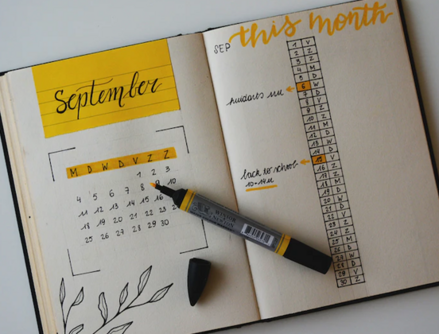 September
M D W D V Z Z
1 2 3
4 5 6 7 8 9 10
11 12 13 14 15 16
18 19 20 21 22 23
25 26 27 28 29 30
SEP this month
1 V
2 Z
3 Z
4 M
5 D
6 W
7 D
8 V
9 Z
10 Z
11 M
12 D
13 W
14 D
15 V
16 Z
17 Z
18 M
19 D
20 W
21 D
22 V
23 Z
24 Z
25 M
26 D
27 W
28 D
29 V
30 Z
back to school